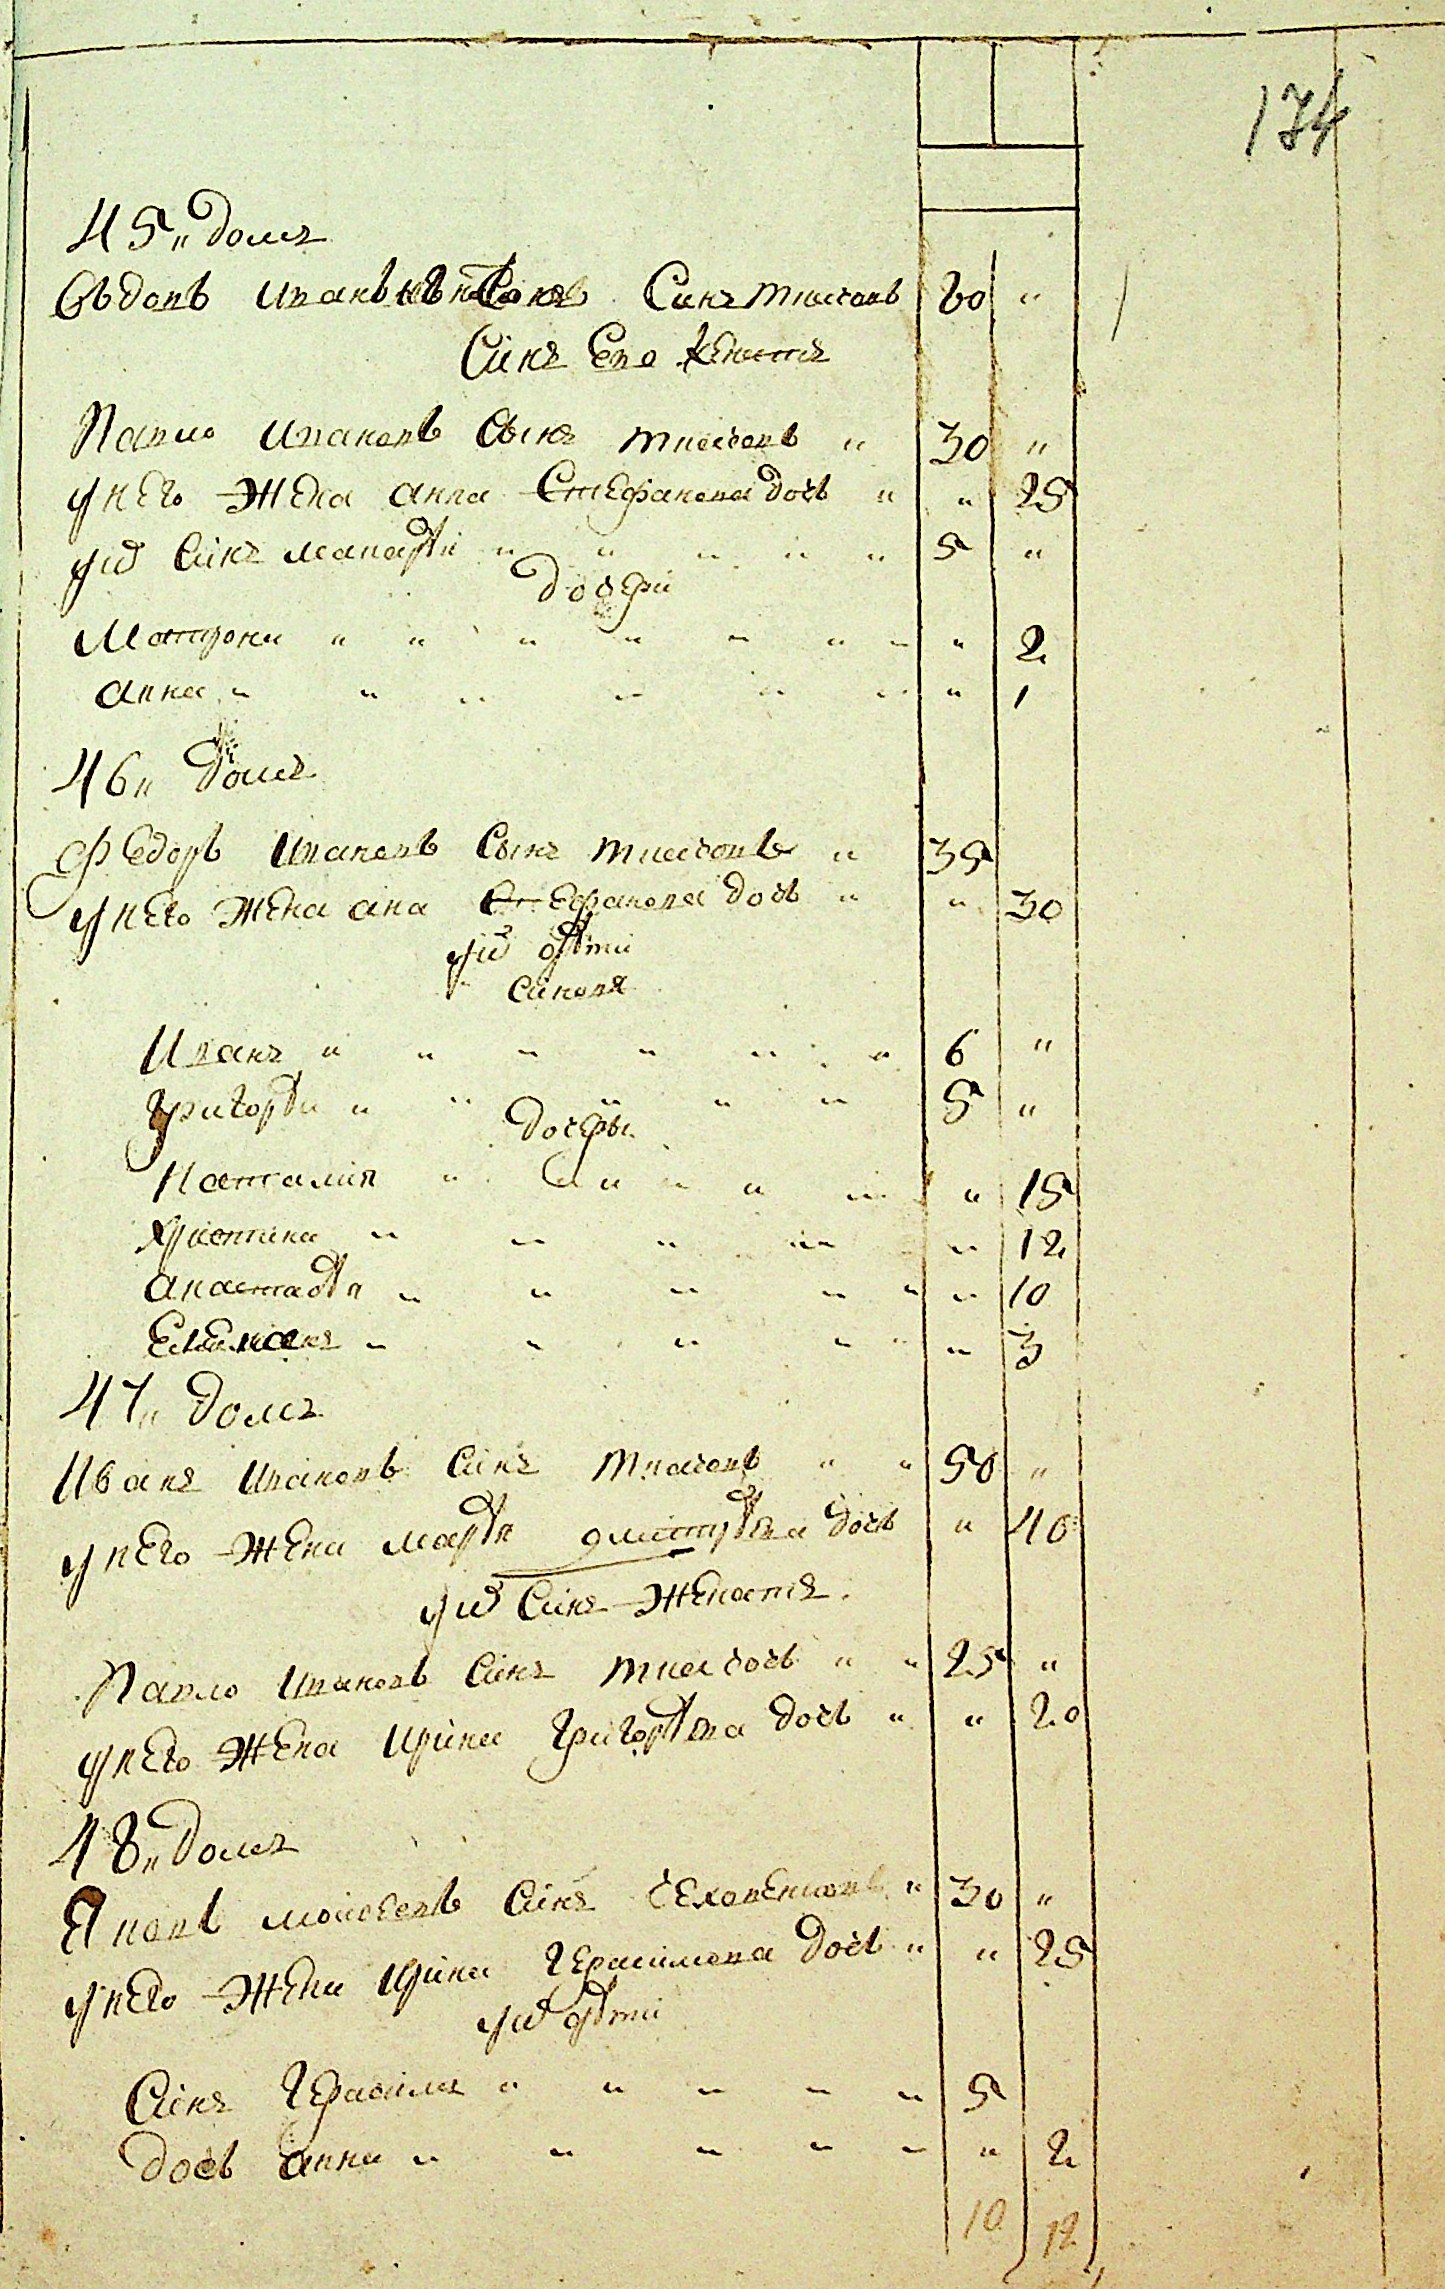 174
45 „ домъ
Вдовъ Иванъ Синъ Ткачовъ 60 „
Синъ Его Женатъ
Павло Ивановъ Сынъ Ткачовъ „ 30 „
у него Жена Анна Стефанова дочь „ „ 25
у них Синъ Макарѣй „ „ „ „ „ 5 „
дочери
Матрона „ „ „ „ „ „ „ „ 2
Анна „ „ „ „ „ „ „ 1
46 „ домъ
Федоръ Ивановъ Сынъ Ткачовъ „ 35
у него Жена Ана Стефанова дочь „ „ 30
у них дѣти
Синовя
Иванъ „ „ „ „ „ „ 6 „
Григорѣй „ „ „ „ „ 5 „
дочеры
Наталия „ „ „ „ „ „ „ 15
Христина „ „ „ „ „ 12
Анастасѣя „ „ „ „ „ „ 10
„ „ „ „ „ „ 3
47 „ домъ
Иванъ Ивановъ Синъ Ткачовъ „ „ 50 „
у него Жена Марѣя Дмитрѣева дочь „ 40
у них Синъ Женатъ
Павло Ивановъ Синъ Ткачовъ „ „ 25 „
у него Жена Ирина Григорѣева дочь „ „ 20
48 „ домъ
Яковъ Мойсеевъ Синъ „ 30 „
у него Жена Ирина Герасимова дочь „ „ 25
у них дѣти
Синъ Герасимъ „ „ „ „ „ 5
дочь Анна „ „ „ „ „ „ 2
10 12